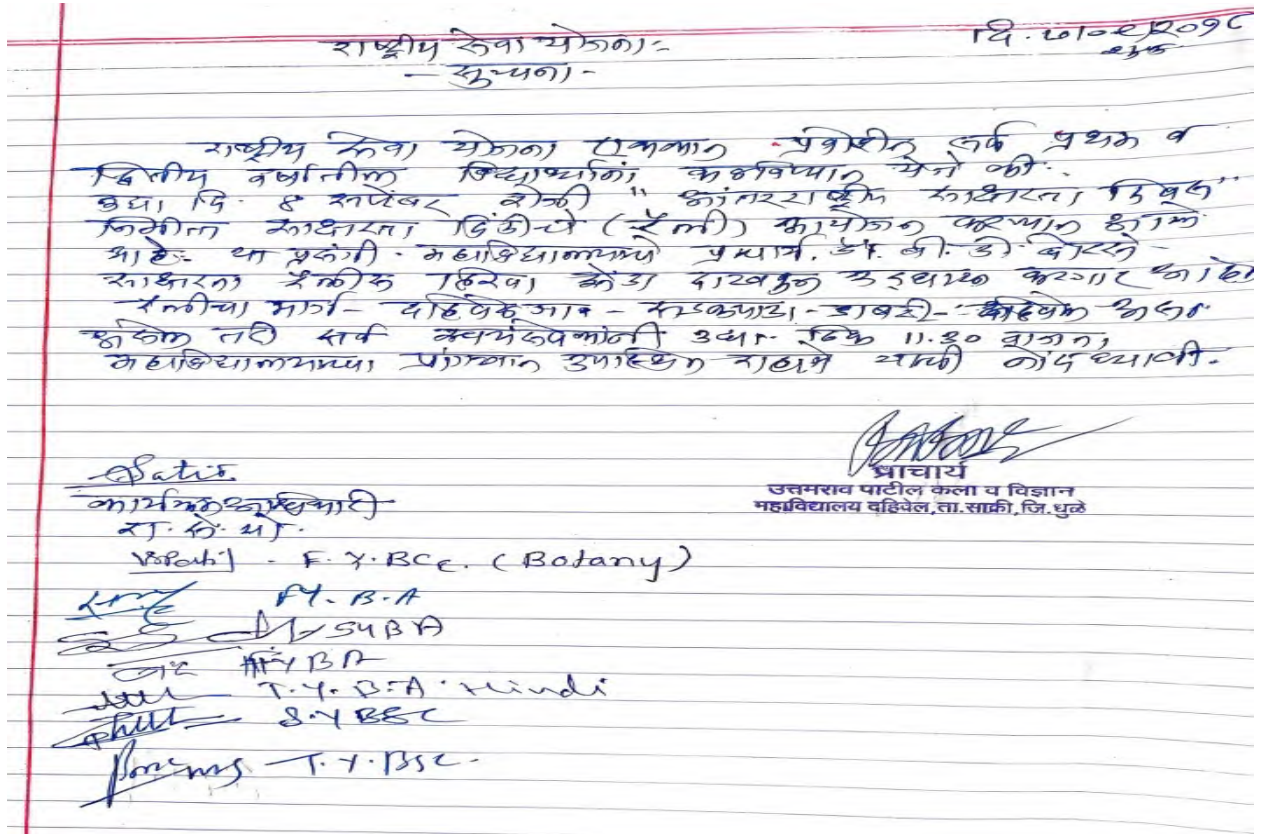 राष्ट्रीय सेवा योजना:-
दि. ७/०९/२०१८
- सूचना -
राष्ट्रीय सेवा योजना एककात प्रवेशीत सर्व प्रथम व
द्वितीय वर्षातील विद्यार्थ्यांना कळविण्यात येते की.
उद्या दि. ८ सप्टेंबर रोजी "आंतरराष्ट्रीय साक्षरता दिवस"
निमीत्त साक्षरता दिंडीचे (रॅली) आयोजन करण्यात आले
आहे. या प्रसंगी महाविद्यालयाचे प्राचार्य. डॉ. बी. डी. बोरसे
साक्षरता रॅलीस हिरवा झेंडा दाखवून उद्घाटन करणार आहे
रॅलीचा मार्ग - दहिवेल गाव - - दहिवेल असा
असेल तरी सर्व स्वयंसेवकांनी उद्या ठिक 11.30 वाजता
महाविद्यालयाच्या प्रांगणात उपस्थित राहावे याची नोंद घ्यावी.
प्राचार्य
उत्तमराव पाटील कला व विज्ञान
महाविद्यालय दहिवेल, ता. साक्री, जि. धुळे
कार्यक्रम अधिकारी
रा. से. यो.
- F. Y. BSc. (Botany)
FY. B. A
SYBA
FYBA
T. Y. B. A. Hindi
S. Y BSC
- T. Y. BSC.